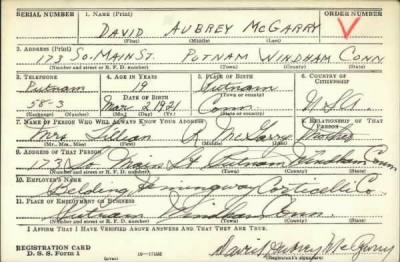 SERIAL NUMBER 1. NAME (Print) ORDER NUMBER
DAVID AUBREY McGARRY V
(First) (Middle) (Last)
2. ADDRESS (Print)
173 So. MAIN ST. PUTNAM WINDHAM CONN
(Number and street or R. F. D. number) (Town) (County) (State)
3. TELEPHONE 4. AGE IN YEARS 5. PLACE OF BIRTH 6. COUNTRY OF CITIZENSHIP
Putnam 19 Putnam
DATE OF BIRTH (Town or county)
58-3 Mar 2 1921 Conn. USA
(Exchange) (Number) (Mo.) (Day) (Yr.) (State or country)
7. NAME OF PERSON WHO WILL ALWAYS KNOW YOUR ADDRESS 8. RELATIONSHIP OF THAT PERSON
Mrs. Lillian R McGarry Mother
(Mr., Mrs., Miss) (First) (Middle) (Last)
9. ADDRESS OF THAT PERSON
173 So. Main St Putnam Windham Conn
(Number and street or R. F. D. number) (Town) (County) (State)
10. EMPLOYER'S NAME
Belding Heminway Corticelli Co.
11. PLACE OF EMPLOYMENT OR BUSINESS
Putnam Windham Conn.
(Number and street or R. F. D. number) (Town) (County) (State)
I AFFIRM THAT I HAVE VERIFIED ABOVE ANSWERS AND THAT THEY ARE TRUE.
REGISTRATION CARD David Aubrey McGarry
D. S. S. Form 1 (Registrant's signature)